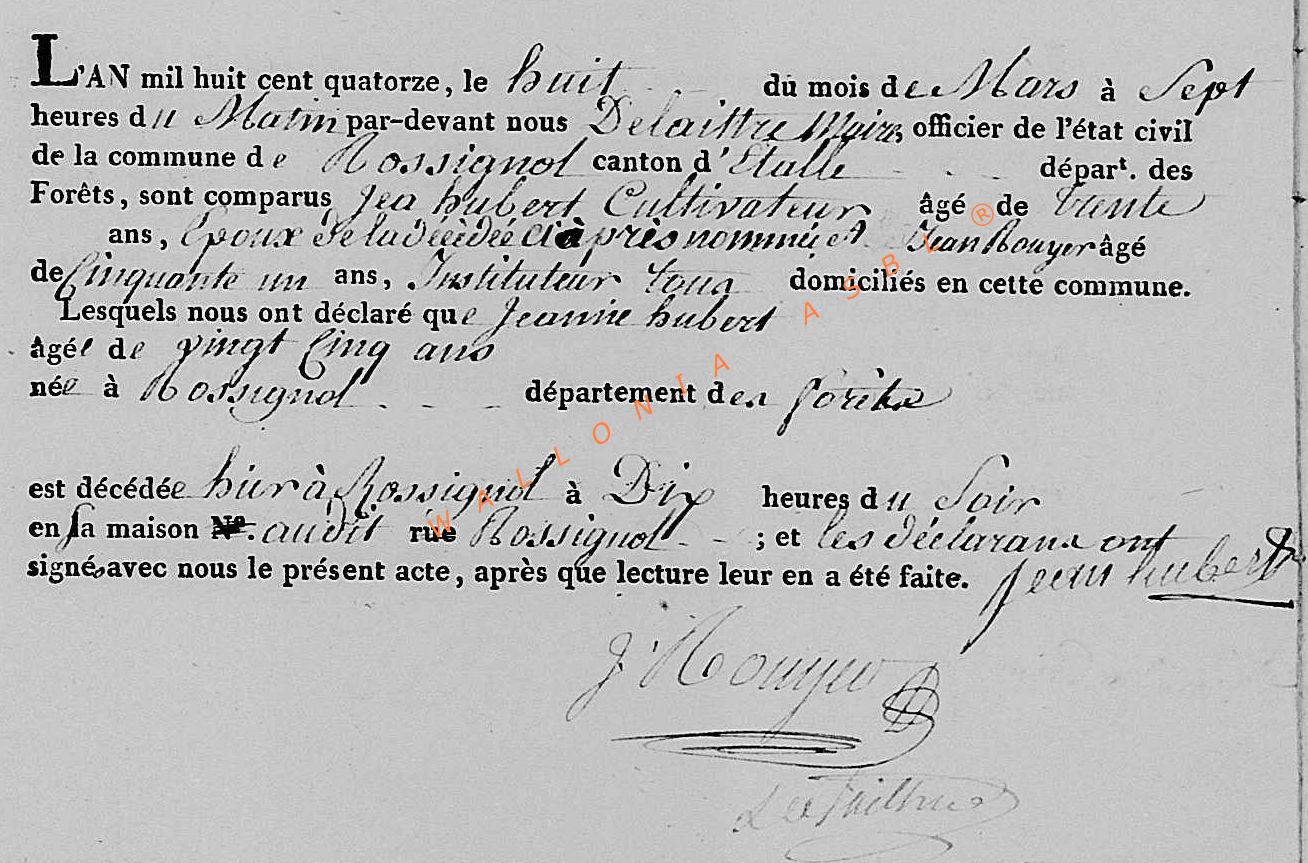 L'AN mil huit cent quatorze, le huit du mois de Mars à Sept
heures du Matin par-devant nous Delaittre Maire, officier de l'état civil
de la commune de Rossignol canton d'Etalle départ. des
Forêts, sont comparus Jea hubert Cultivateur âgé de trente
ans, Epoux de la décédée ci après nommée et Jean Rouyer âgé
de Cinquante un ans, Instituteur tous domiciliés en cette commune.
Lesquels nous ont déclaré que Jeanne hubert
âgée de vingt Cinq ans
née à Rossignol département des forêts
est décédée hier à Rossignol à Dix heures du Soir
en sa maison N°. audit rue Rossignol ; et les déclarans ont
signés avec nous le présent acte, après que lecture leur en a été faite. Jean hubert
J Rouyer
WALLONIA ASBL ®